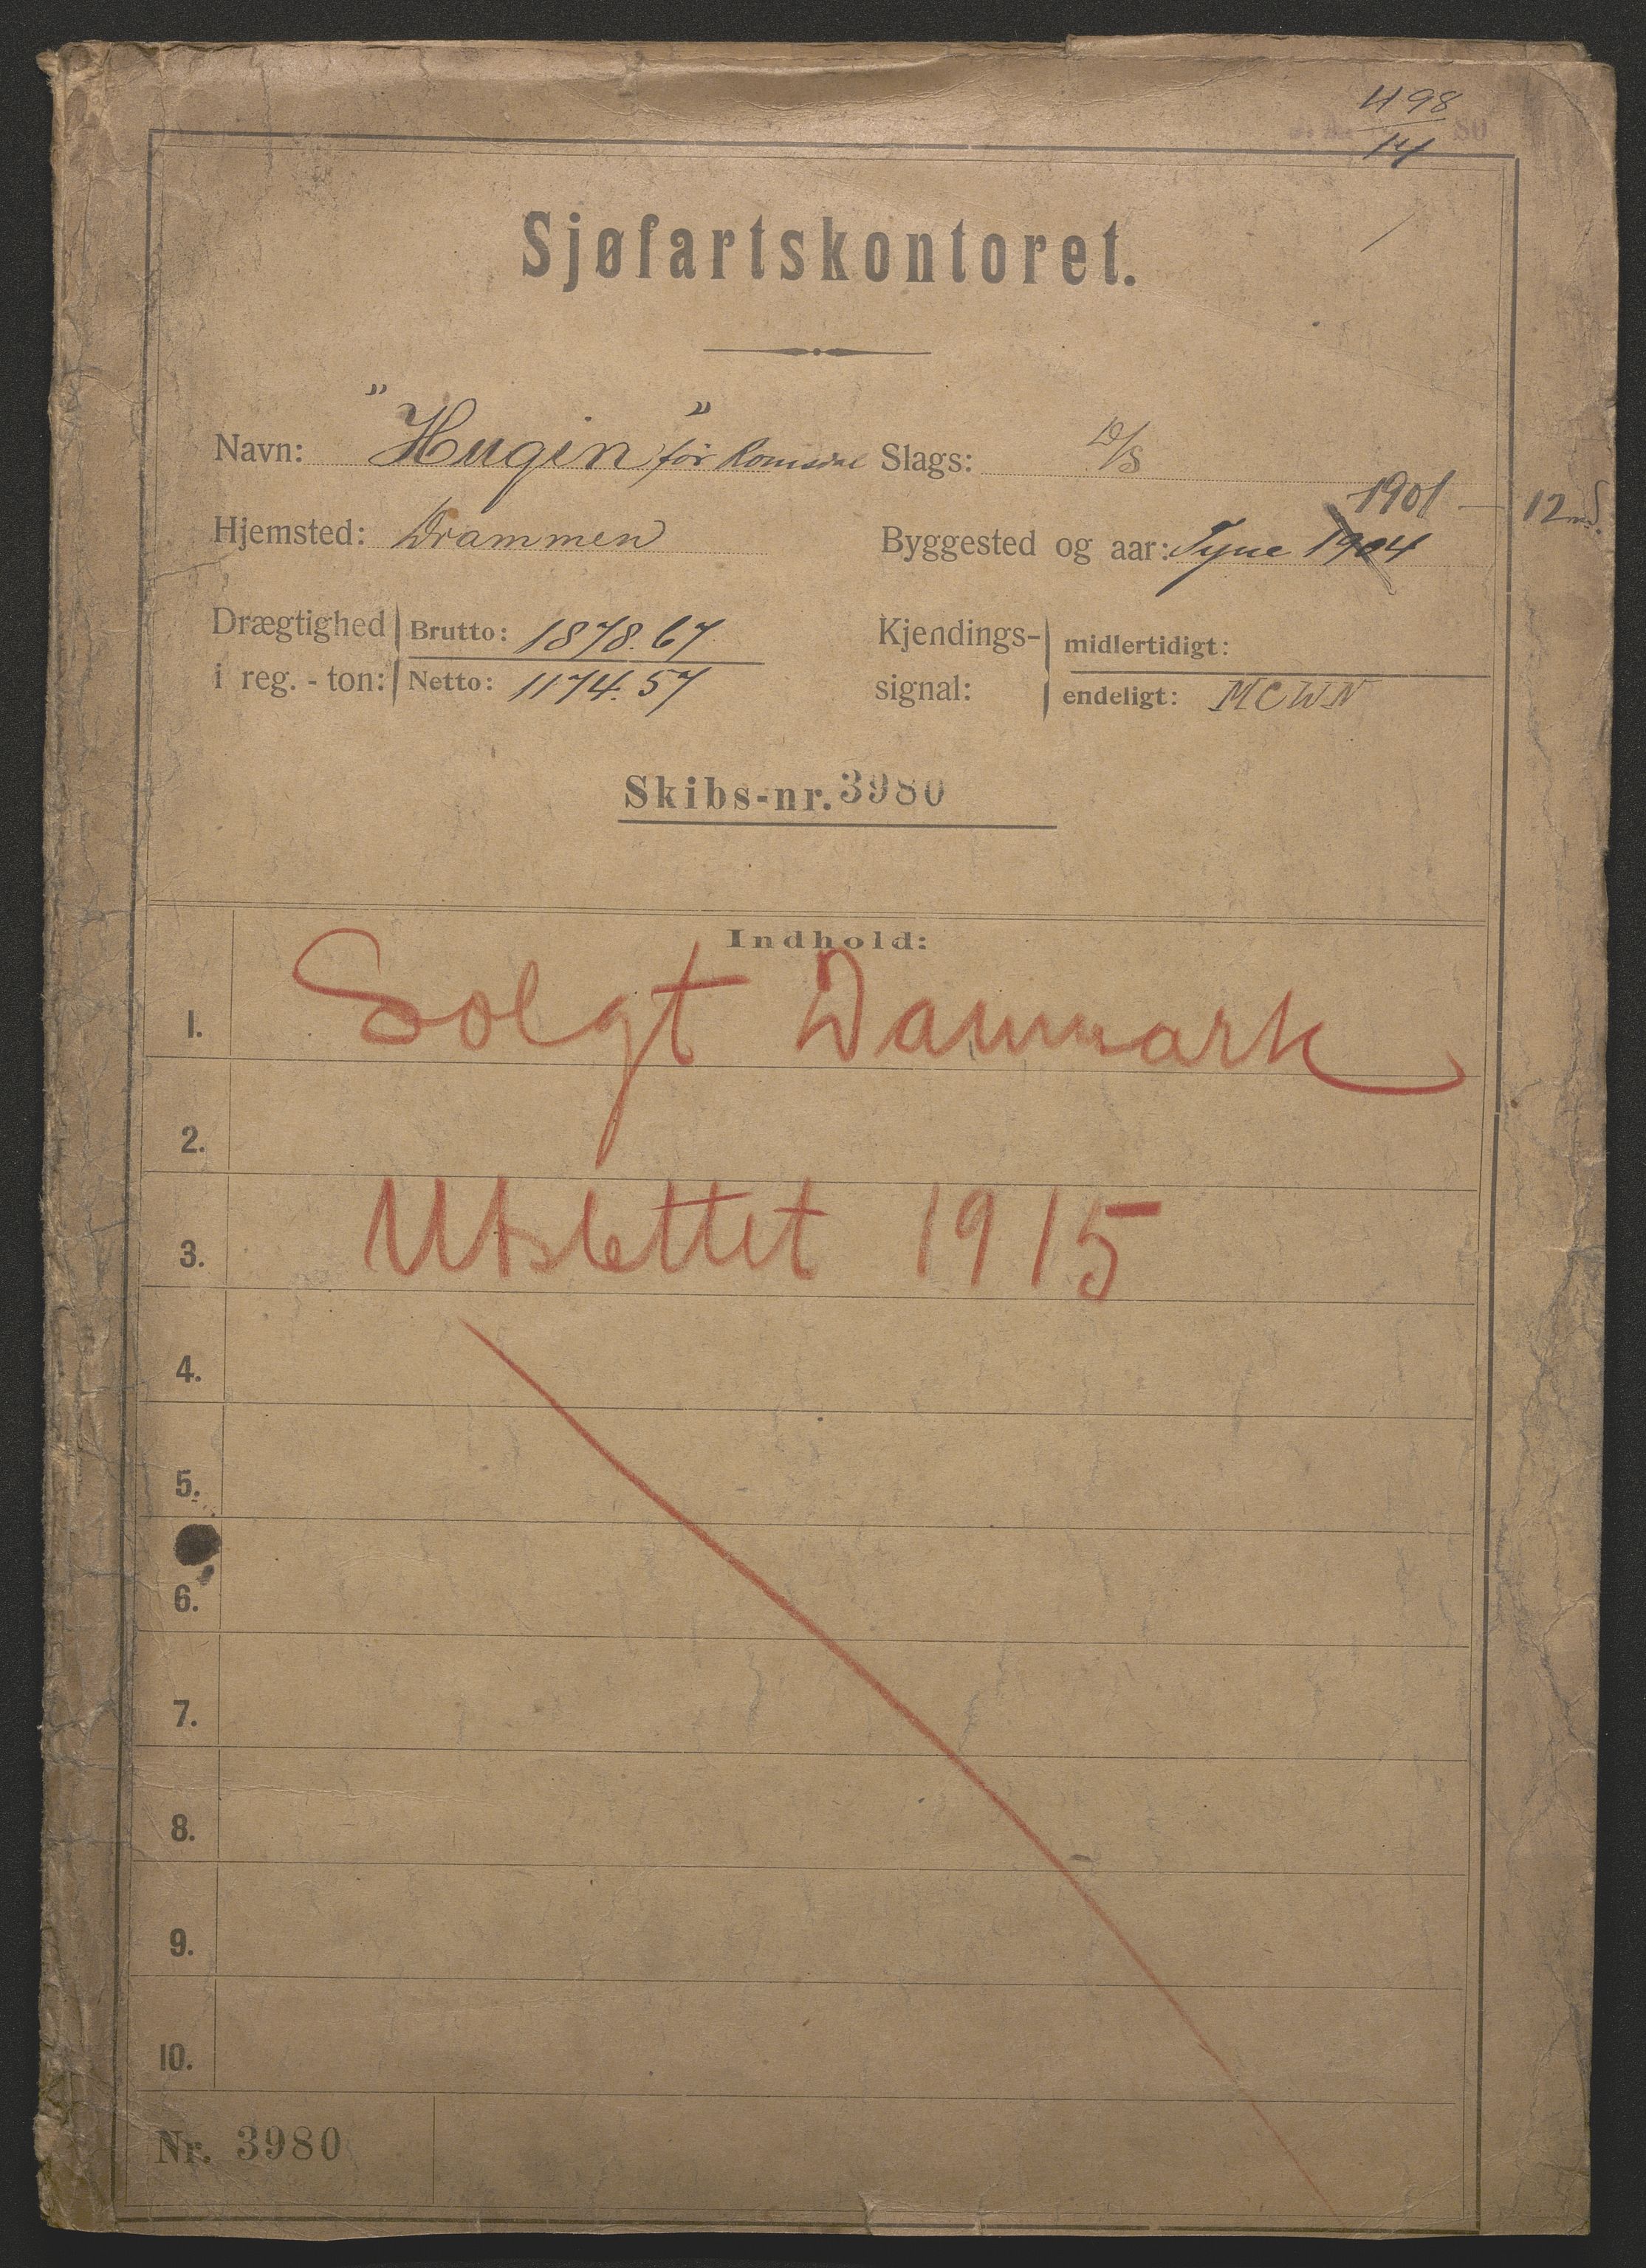 4198
14
Sjøfartskontoret.
Navn: "Hugin" før Romsdal Slags: D/S
Hjemsted: Drammen
1901 — 12
Byggested og aar: Tyne 1904
Drægtighed i reg.-ton: Brutto: 1878.67
Netto: 1174.57
Kjendings-signal: midlertidigt:
endeligt: MCWN
Skibs-nr. 3980
Indhold:
1. Solgt Danmark
2.
3. Utslettet 1915
4.
5.
6.
7.
8.
9.
10.
Nr. 3980